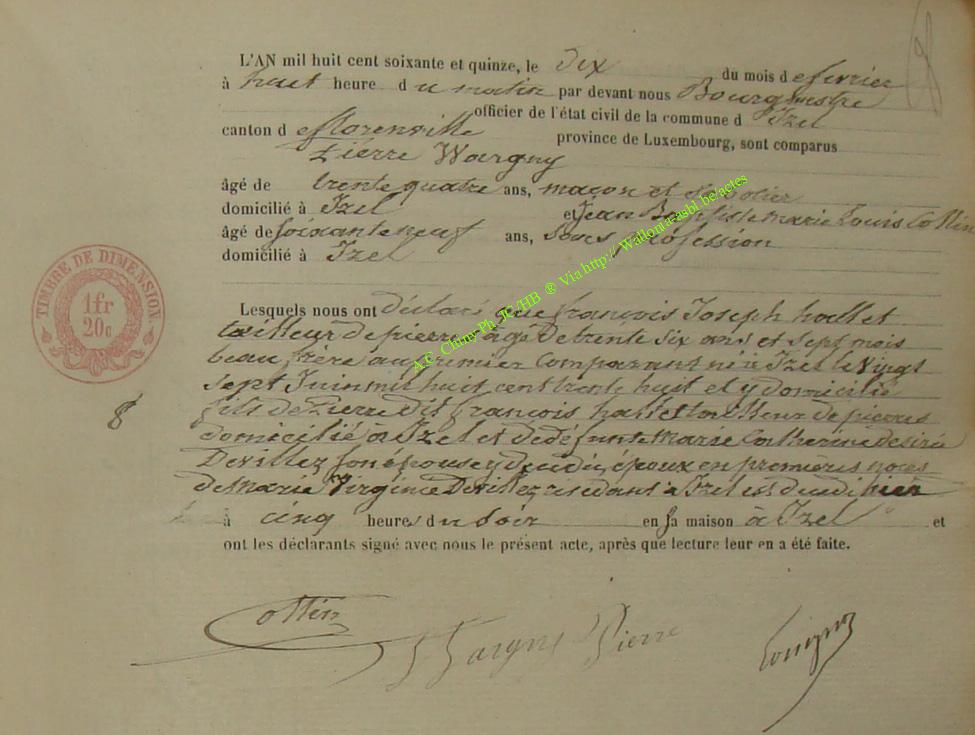 L'AN mil huit cent soixante et quinze, le dix du mois de fevrier
à huit heure du matin par devant nous Bourgmestre
officier de l'état civil de la commune d Izel
canton de florenville province de Luxembourg, sont comparus
Pierre Wargny
âgé de trente quatre ans, maçon et
domicilié à Izel et Jean Baptiste marie Louis Collin
âgé de soixante neuf ans, sans profession
domicilié à Izel
Lesquels nous ont déclaré que françois Joseph hallet
tailleur de pierres âgé de trente six ans et sept mois
beau frère au premier comparant né à Izel le vingt
sept Juin mil huit cent trente huit et y domicilié
fils de Pierre dit françois hallet tailleur de pierres
domicilié à Izel et de défunte Marie Catherine désirée
Devillez son épouse y décédée, époux en premières noces
de Marie Virginie Devillez résidant à Izel est décédé hier
à cinq heures du soir en sa maison à Izel et
ont les déclarants signé avec nous le présent acte, après que lecture leur en a été faite.
TIMBRE DE DIMENSION
1fr
20c
8
A.C. Chiny Ph. JC/HB ® Via http://Wallonia-asbl.be/actes
Collin
Wargny Pierre